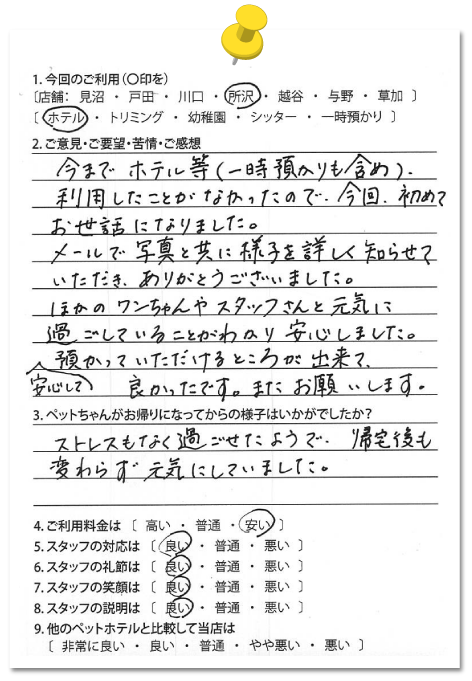 1. 今回のご利用(〇印を)
〔店舗: 見沼 ・ 戸田 ・ 川口 ・ 所沢 ・ 越谷 ・ 与野 ・ 草加 〕
〔 ホテル ・ トリミング ・ 幼稚園 ・ シッター ・ 一時預かり 〕
2. ご意見・ご要望・苦情・ご感想
今まで ホテル等(一時預かりも含め)、
利用したことがなかったので、今回、初めて
お世話になりました。
メールで 写真と共に様子を詳しく知らせて
いただき、ありがとうございました。
ほかの ワンちゃんや スタッフさんと 元気に
過ごしていることがわかり 安心しました。
安心して預かっていただけるところが 出来て、
良かったです。また お願いします。
3. ペットちゃんがお帰りになってからの様子はいかがでしたか?
ストレスもなく過ごせたようで、帰宅後も
変わらず 元気にしていました。
4. ご利用料金は 〔 高い ・ 普通 ・ 安い 〕
5. スタッフの対応は 〔 良い ・ 普通 ・ 悪い 〕
6. スタッフの礼節は 〔 良い ・ 普通 ・ 悪い 〕
7. スタッフの笑顔は 〔 良い ・ 普通 ・ 悪い 〕
8. スタッフの説明は 〔 良い ・ 普通 ・ 悪い 〕
9. 他のペットホテルと比較して当店は
〔 非常に良い ・ 良い ・ 普通 ・ やや悪い ・ 悪い 〕